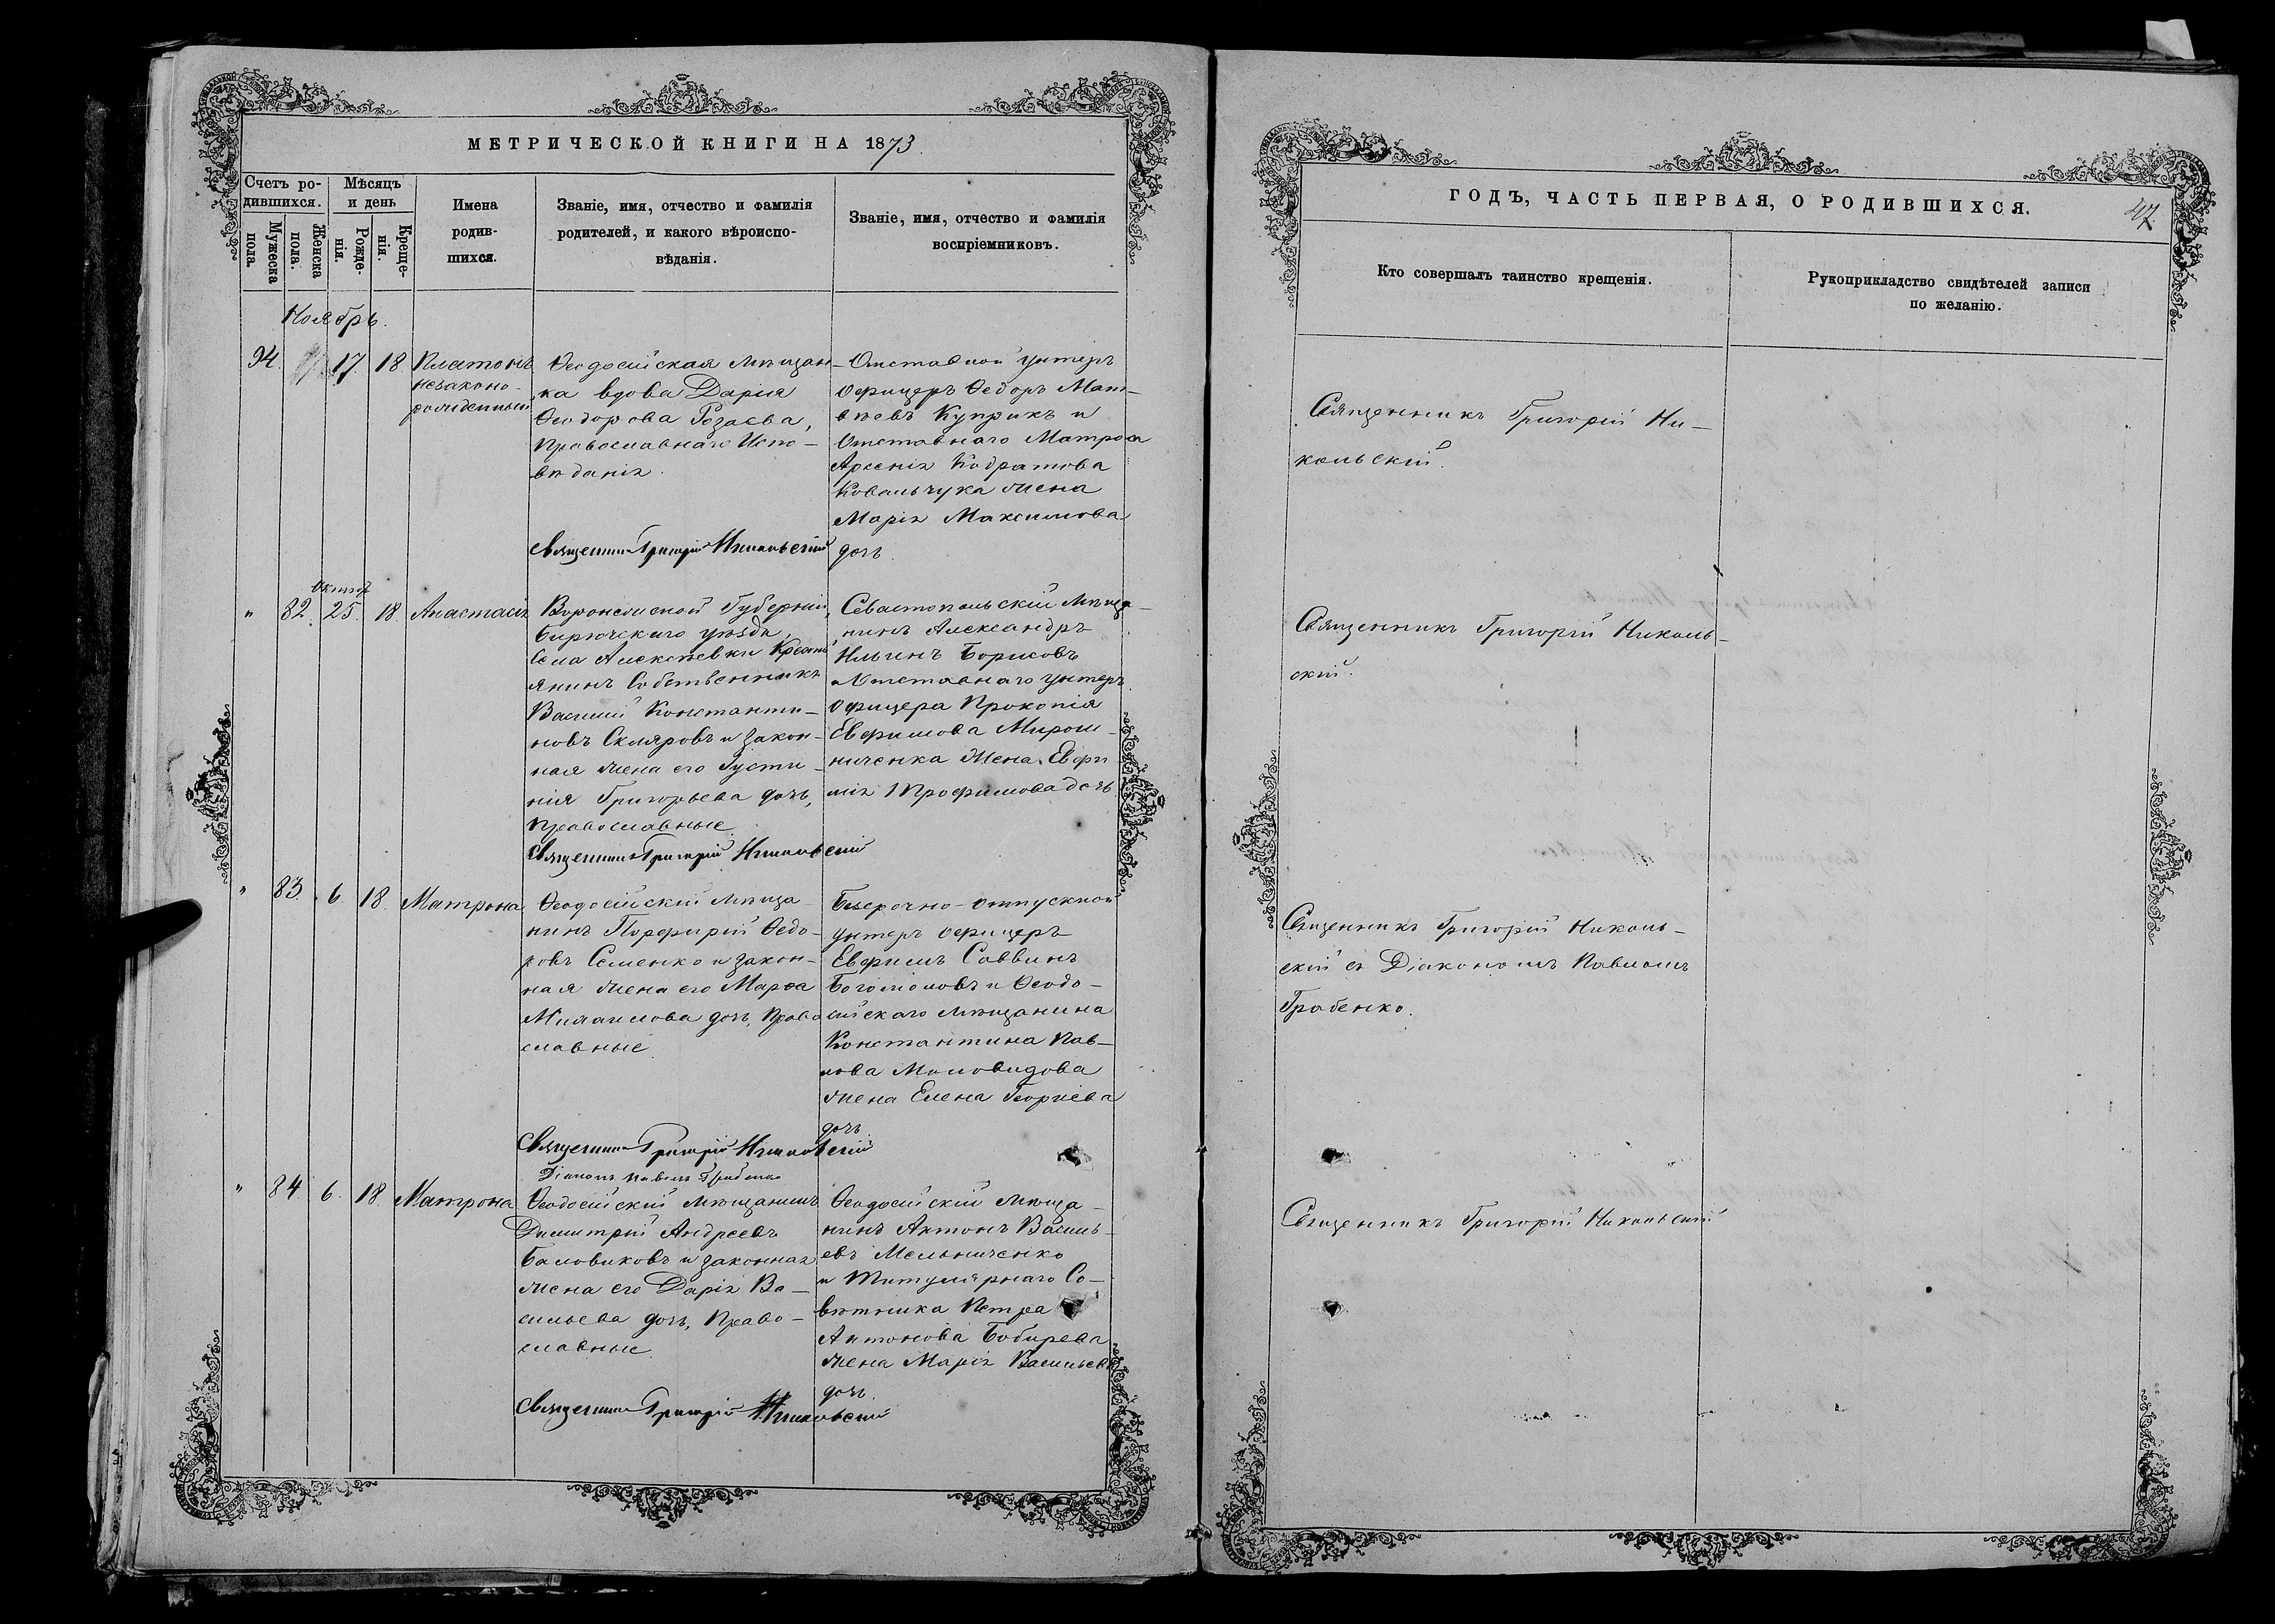 МЕТРИЧЕСКОЙ КНИГИ НА 1873
Счетъ ро-
дившихся.
Мужеска
пола.
Женска
пола.
Мѣсяцъ
и день
Рожде-
нія.
Креще-
нія.
Имена
родив-
шихся.
Званіе, имя, отчество и фамилія
родителей, и какого вѣроиспо-
вѣданія.
Званіе, имя, отчество и фамилія
воспріемниковъ.
Ноябрь.
94. 17. 18 Платонъ
незаконо-
рожденный
Ѳеодосійская мѣщан-
ка вдова Дарія
Ѳеодорова Розаева,
Православнаго Испо-
вѣданія.
Священникъ Григорій Никольскій
Отставной унтеръ
офицеръ Ѳедоръ Мат-
вѣевъ Куприкъ и
Отставнаго Матроса
Арсенія Кодратова
Ковальчука жена
Марія Максимова
дочь.
" 82. Октяб. 25. 18. Анастасія
Воронежской Губерніи,
Бирюческаго уѣзда,
Села Алексѣевки Крестъ
янинъ Собственникъ
Василій Константи-
новъ Скляровъ и закон-
ная жена его Густи-
нія Григорьева дочь,
Православные.
Священникъ Григорій Никольскій
Севастопольскій мѣща-
нинъ Александръ
Ильинъ Борисовъ
и Отставнаго унтеръ
офицера Прокопія
Евфимова Мирош-
ниченка Жена Евфи
мія Трофимова дочь
" 83. 6 18. Матрона
Ѳеодосійскій мѣща-
нинъ Порфирій Ѳедо-
ровъ Семенко и закон-
ная жена его Марѳа
Михаилова дочь, Право
славные.
Священникъ Григорій Никольскій
Діаконъ Павелъ Грабенко
Безсрочно-отпускной
унтеръ офицеръ
Евфимъ Саввинъ
Богомоловъ и Ѳеодо-
сійскаго мѣщанина
Константина Пав-
лова Миловидова
жена Елена Георгіева
дочь.
" 84. 6. 18. Матрона
Ѳеодосійскій мѣщанинъ
Димитрій Андреевъ
Баловиковъ и законная
жена его Дарія Ва-
сильева дочь, Право-
славные.
Священникъ Григорій Никольскій
Ѳеодосійскій мѣща-
нинъ Антонъ Василь-
евъ Мельниченко
и Титулярнаго Со-
вѣтника Петра
Антонова Бобырева
жена Марія Васильева
дочь.
ГОДЪ, ЧАСТЬ ПЕРВАЯ, О РОДИВШИХСЯ.
47.
Кто совершалъ таинство крещенія.
Рукоприкладство свидѣтелей записи
по желанію.
Священникъ Григорій Ни-
кольскій.
Священникъ Григорій Николь-
скій.
Священникъ Григорій Николь-
скій съ Діакономъ Павломъ
Грабенко.
Священникъ Григорій Никольскій